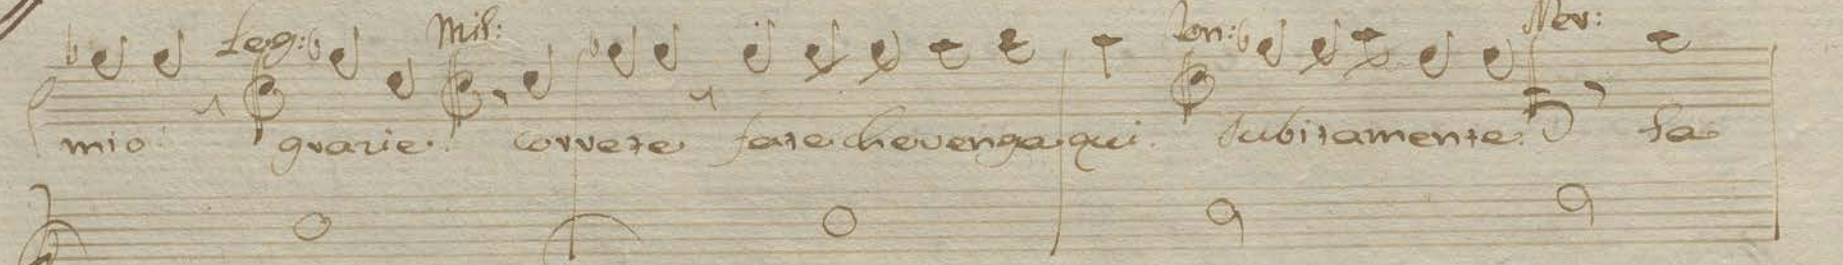 Leg: Mil: Ton: Ner:
mio grazie. correte fate che venga qui. subitamente. la